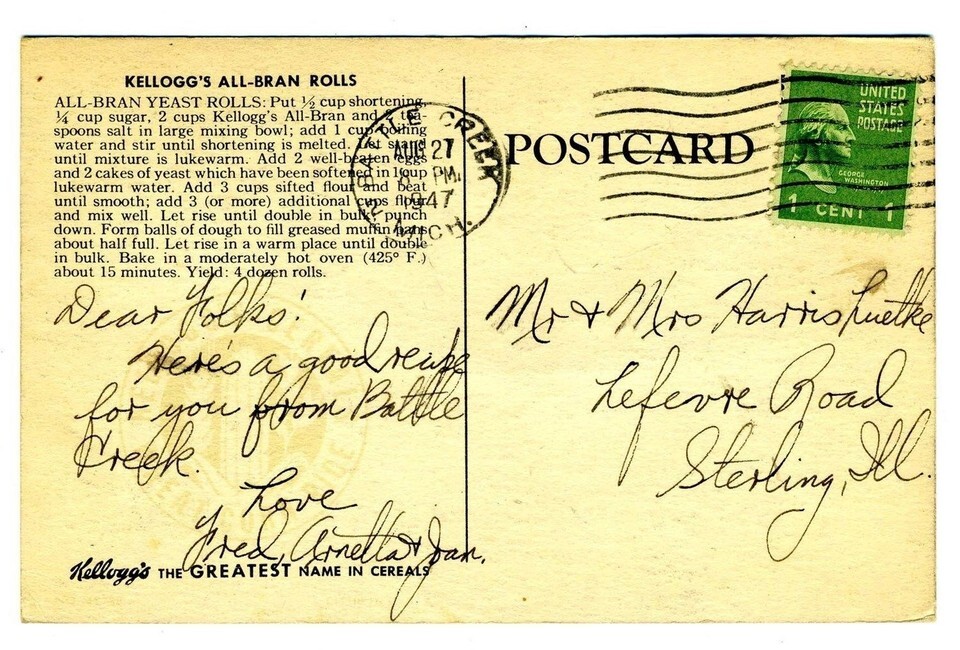 KELLOGG'S ALL-BRAN ROLLS
ALL-BRAN YEAST ROLLS: Put ½ cup shortening,
¼ cup sugar, 2 cups Kellogg's All-Bran and 2 tea-
spoons salt in large mixing bowl; add 1 cup boiling
water and stir until shortening is melted. Let stand
until mixture is lukewarm. Add 2 well-beaten eggs
and 2 cakes of yeast which have been softened in 1 cup
lukewarm water. Add 3 cups sifted flour and beat
until smooth; add 3 (or more) additional cups flour
and mix well. Let rise until double in bulk, punch
down. Form balls of dough to fill greased muffin pans
about half full. Let rise in a warm place until double
in bulk. Bake in a moderately hot oven (425° F.)
about 15 minutes. Yield: 4 dozen rolls.
Dear Folks!
Here's a good recipe
for you from Battle
Creek.
Love
Fred, Arnetta & Joan.
Kellogg's THE GREATEST NAME IN CEREALS
BATTLE CREEK
AUG 27
PM
1947
MICH.
POSTCARD
UNITED
STATES
POSTAGE
GEORGE
WASHINGTON
1 CENT 1
Mr & Mrs Harris Luetke
Lefevre Road
Sterling, Ill.